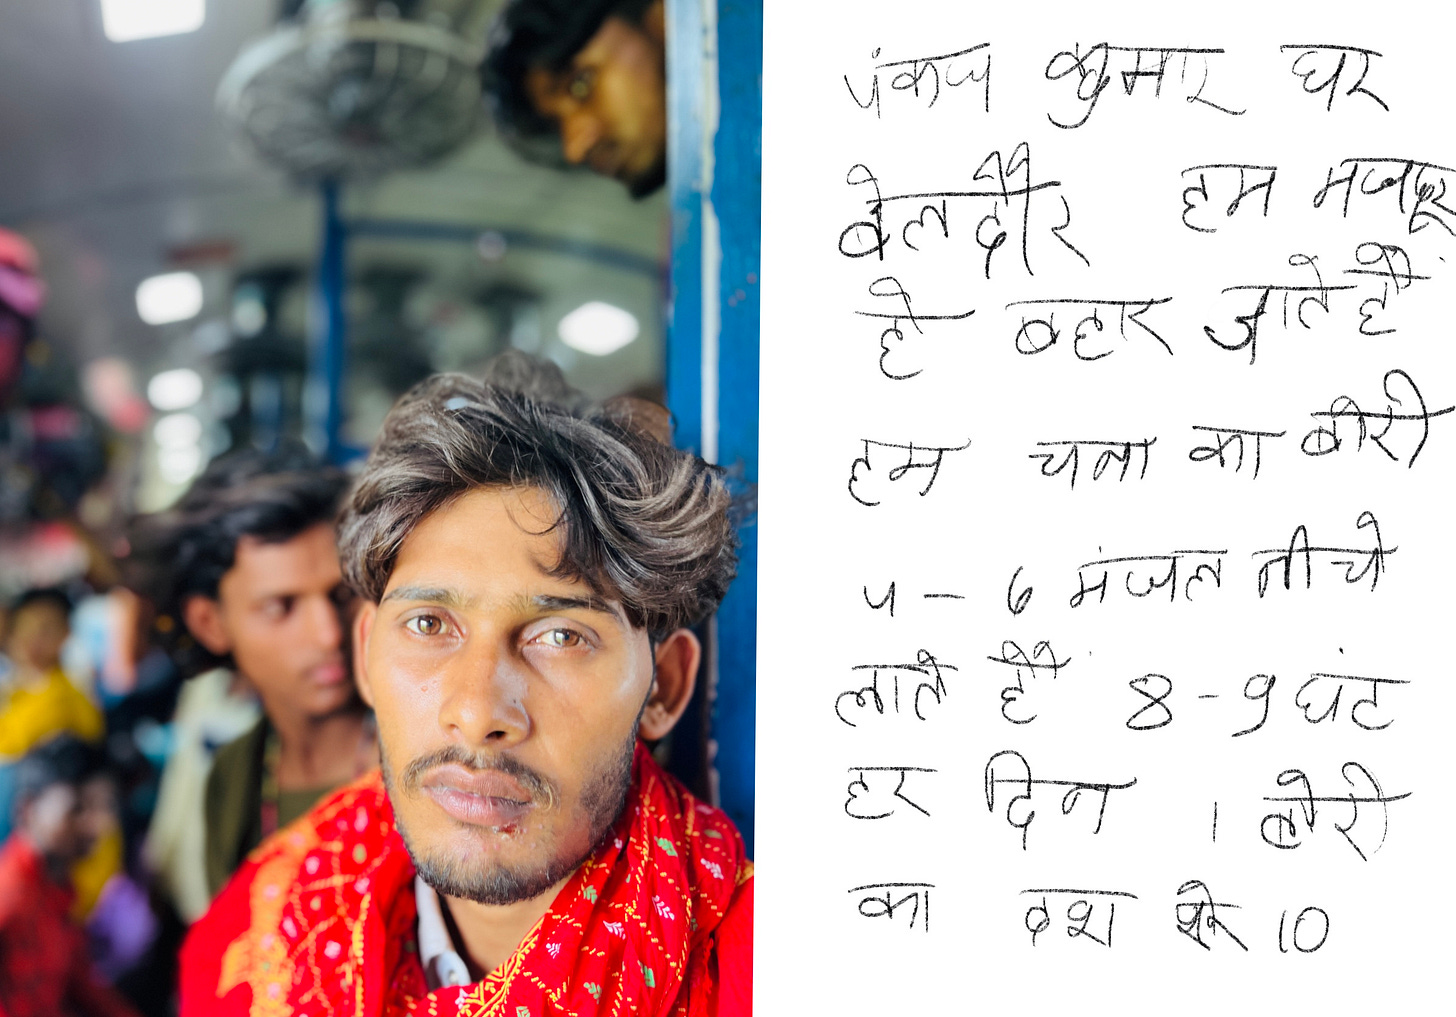 पंकज कुमार घर
बेलदौर हम मजदूर
है बहार जाते हैं
हम चना का बोरी
५ - 6 मंजल नीचे
लाते हैं 8-9 घंट
हर दिन 1 बोरी
का दश 10